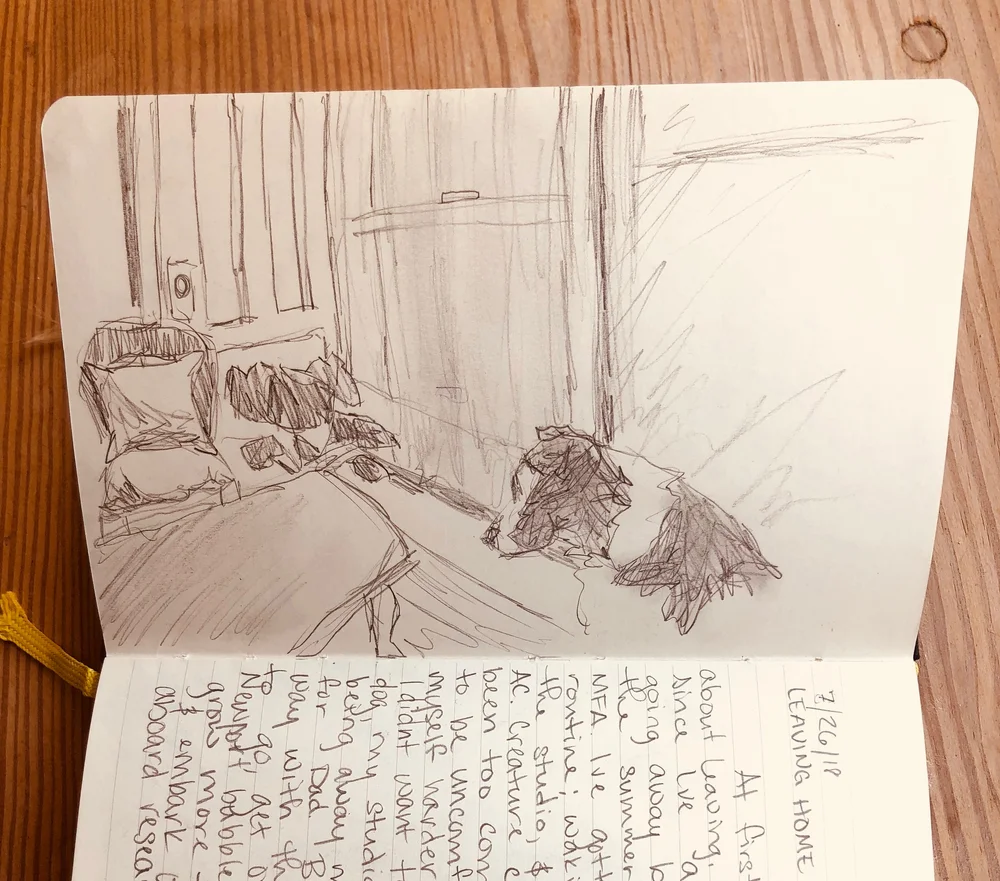 7/26/18
LEAVING HOME
At first
about leaving,
since I've a
going away b
the summer
MFA. I've gott
routine; walki
the studio, &
AC. Creature c
been too com
to be uncomf
myself harder
I didnt want t
day, my studi
being away m
for Dad B
way with th
to go, get o
Newport bubble
grow more
& embark
aboard resea